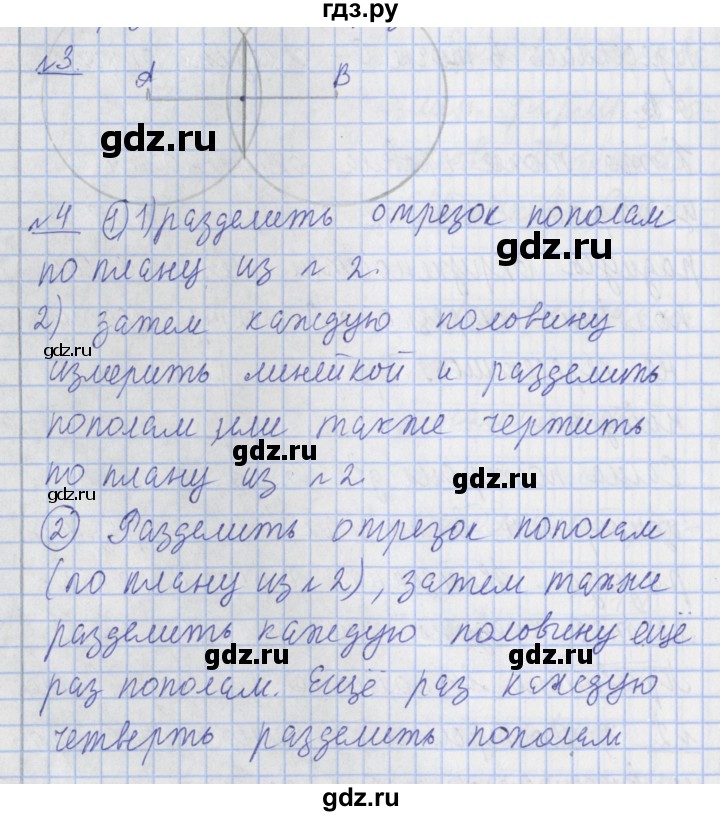 гдз.ру
№3.
А В
gdz.ru
№4 ① 1) разделить отрезок пополам
gdz.ru
по плану из № 2.
2) затем каждую половину
gdz.ru
измерить линейкой и разделить
пополам или также чертить
gdz.ru
по плану из № 2.
gdz.ru
gdz.ru
② Разделить отрезок пополам
(по плану из № 2), затем также
разделить каждую половину ещё
gdz.ru gdz.ru
раз пополам. Ещё раз каждую
четверть разделить пополам
gdz.ru